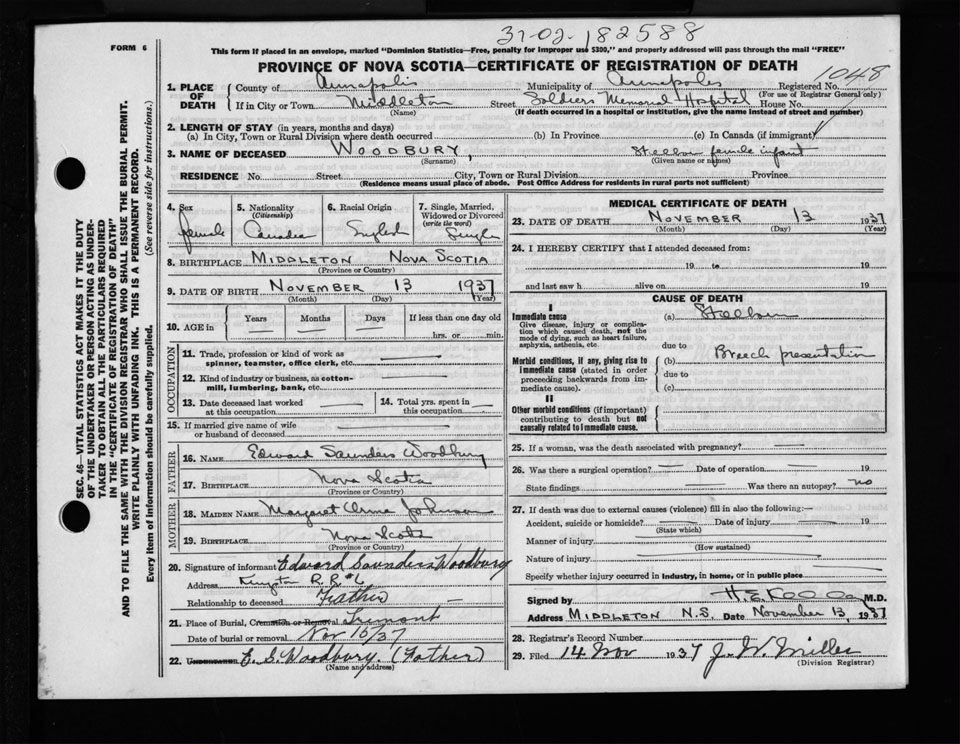 31-02-182588
FORM 6
This form if placed in an envelope, marked "Dominion Statistics—Free, penalty for improper use $300," and properly addressed will pass through the mail "FREE"
PROVINCE OF NOVA SCOTIA—CERTIFICATE OF REGISTRATION OF DEATH
1048
1. PLACE OF DEATH County of Annapolis Municipality of Annapolis Registered No.
(For use of Registrar General only)
If in City or Town Middleton Street Soldiers Memorial Hospital House No.
(Name) (If death occurred in a hospital or institution, give the name instead of street and number)
2. LENGTH OF STAY (in years, months and days)
(a) In City, Town or Rural Division where death occurred (b) In Province (c) In Canada (if immigrant)
3. NAME OF DECEASED WOODBURY, Stillborn female infant
(Surname) (Given name or names)
RESIDENCE No. Street City, Town or Rural Division Province
(Residence means usual place of abode. Post Office Address for residents in rural parts not sufficient)
4. Sex female
5. Nationality (Citizenship) Canadian
6. Racial Origin English
7. Single, Married, Widowed or Divorced (write the word) Single
8. BIRTHPLACE MIDDLETON NOVA SCOTIA
(Province or Country)
9. DATE OF BIRTH NOVEMBER 13 1937
(Month) (Day) (Year)
10. AGE in Years Months Days If less than one day old
hrs. or min.
OCCUPATION
11. Trade, profession or kind of work as spinner, teamster, office clerk, etc.
12. Kind of industry or business, as cotton-mill, lumbering, bank, etc.
13. Date deceased last worked at this occupation
14. Total yrs. spent in this occupation
15. If married give name of wife or husband of deceased
FATHER
16. NAME Edward Saunders Woodbury
17. BIRTHPLACE Nova Scotia
(Province or Country)
MOTHER
18. MAIDEN NAME Margaret Johnson
19. BIRTHPLACE Nova Scotia
(Province or Country)
20. Signature of informant Edward Saunders Woodbury
Address Kingston R.R. #
Relationship to deceased Father
21. Place of Burial, Cremation or Removal Tremont
Date of burial or removal Nov 15/37
22. Undertaker E. S. Woodbury. (Father)
(Name and address)
MEDICAL CERTIFICATE OF DEATH
23. DATE OF DEATH NOVEMBER 13 1937
(Month) (Day) (Year)
24. I HEREBY CERTIFY that I attended deceased from:
19 to 19
and last saw h alive on 19
CAUSE OF DEATH
I
Immediate cause (a) Stillborn
Give disease, injury or complication which caused death, not the mode of dying, such as heart failure, asphyxia, asthenia, etc.
due to
Morbid conditions, if any, giving rise to immediate cause (stated in order proceeding backwards from immediate cause).
(b) Breech presentation
due to
(c)
II
Other morbid conditions (if important) contributing to death but not causally related to immediate cause.
25. If a woman, was the death associated with pregnancy?
26. Was there a surgical operation? Date of operation 19
State findings Was there an autopsy? no
27. If death was due to external causes (violence) fill in also the following:—
Accident, suicide or homicide? Date of injury 19
(State which)
Manner of injury
(How sustained)
Nature of injury
Specify whether injury occurred in industry, in home, or in public place
Signed by H. E. M.D.
Address MIDDLETON N.S. Date November 13, 1937
28. Registrar's Record Number
29. Filed 14 Nov 1937 J. W. Miller
(Division Registrar)
SEC. 46—VITAL STATISTICS ACT MAKES IT THE DUTY
OF THE UNDERTAKER OR PERSON ACTING AS UNDER-
TAKER TO OBTAIN ALL THE PARTICULARS REQUIRED
IN THE "CERTIFICATE OF REGISTRATION OF DEATH"
AND TO FILE THE SAME WITH THE DIVISION REGISTRAR WHO SHALL ISSUE THE BURIAL PERMIT.
WRITE PLAINLY WITH UNFADING INK. THIS IS A PERMANENT RECORD.
Every item of information should be carefully supplied. (See reverse side for instructions.)